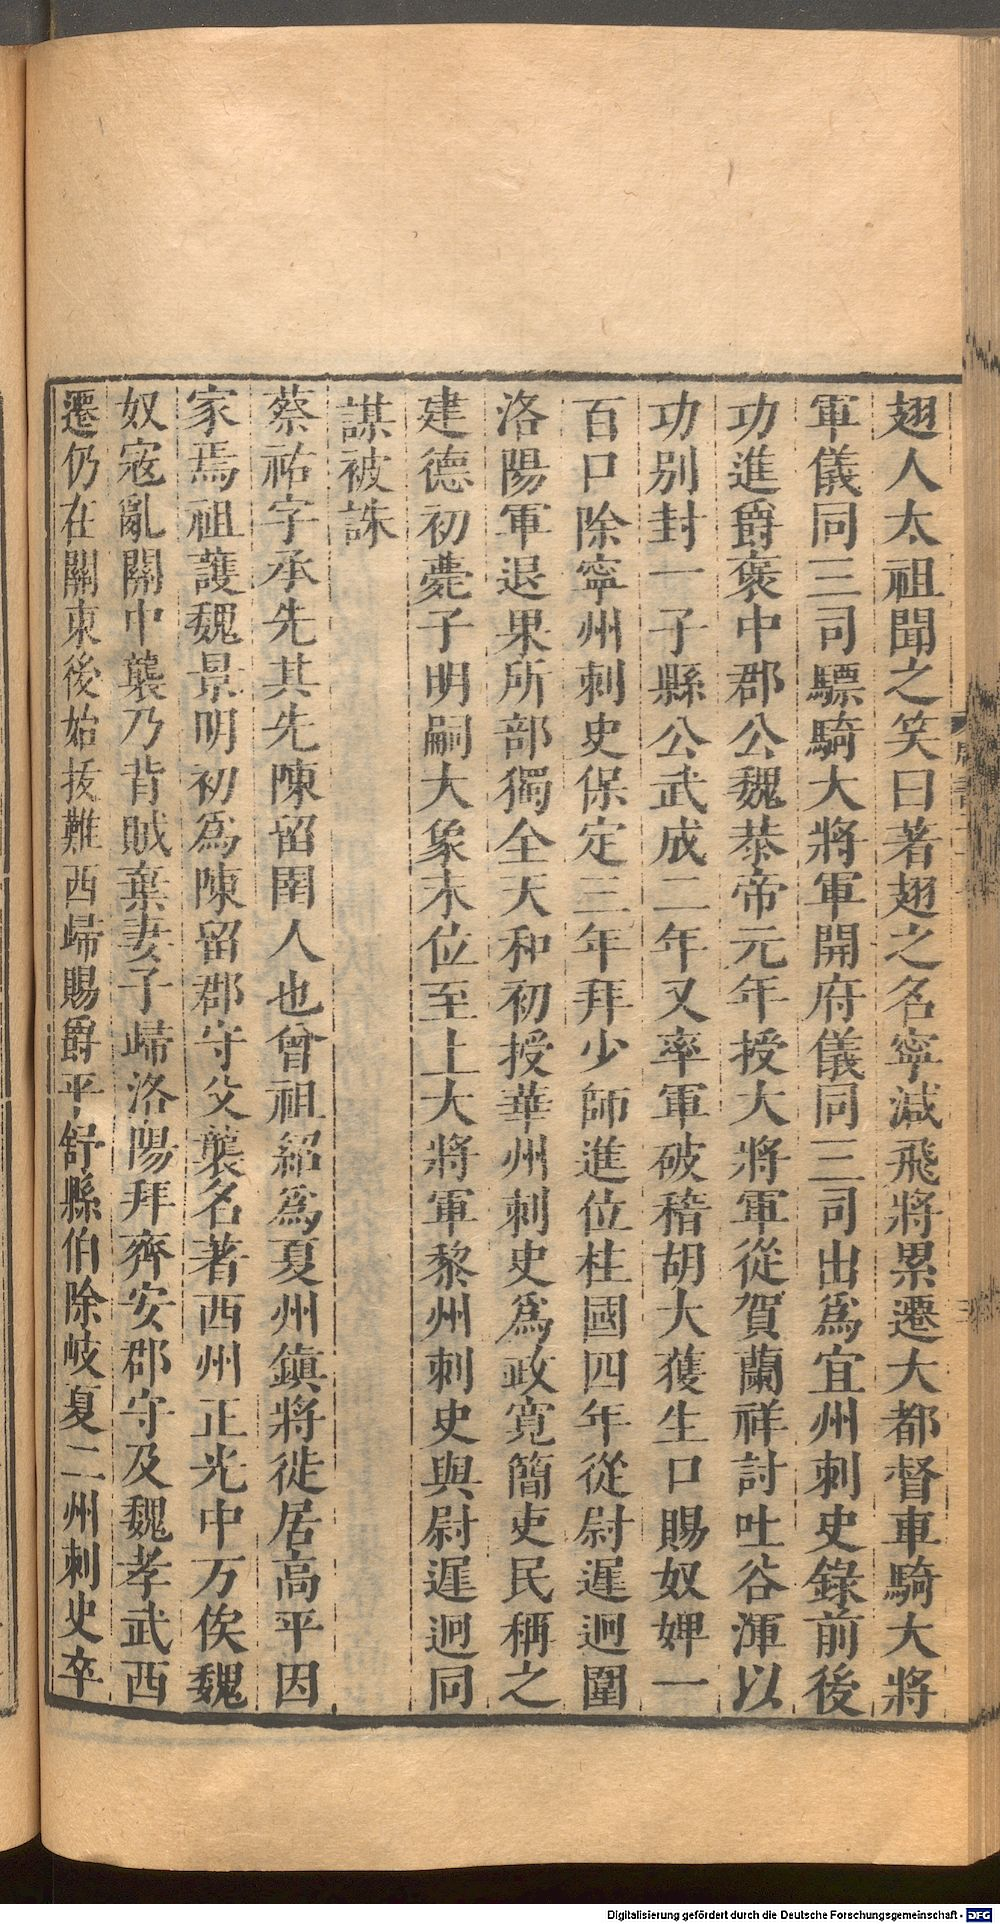 翅人太祖聞之笑曰著翅之名寧減飛將累遷大都督車騎大將
軍儀同三司驃騎大將軍開府儀同三司出爲宜州刺史錄前後
功進爵褒中郡公魏恭帝元年授大將軍從賀蘭祥討吐谷渾以
功別封一子縣公武成二年又率軍破稽胡大獲生口賜奴婢一
百口除寧州刺史保定三年拜少師進位柱國四年從尉遲迥圍
洛陽軍退果所部獨全天和初授華州刺史爲政寬簡吏民稱之
建德初薨子明嗣大象末位至上大將軍黎州刺史與尉遲迥同
謀被誅
蔡祐字承先其先陳留圉人也曾祖紹爲夏州鎭將徙居高平因
家焉祖護魏景明初爲陳留郡守父襲名著西州正光中万俟魏
奴寇亂關中襲乃背賊棄妻子歸洛陽拜齊安郡守及魏孝武西
遷仍在關東後始拔難西歸賜爵平舒縣伯除岐夏二州刺史卒
Digitalisierung gefördert durch die Deutsche Forschungsgemeinschaft - DFG